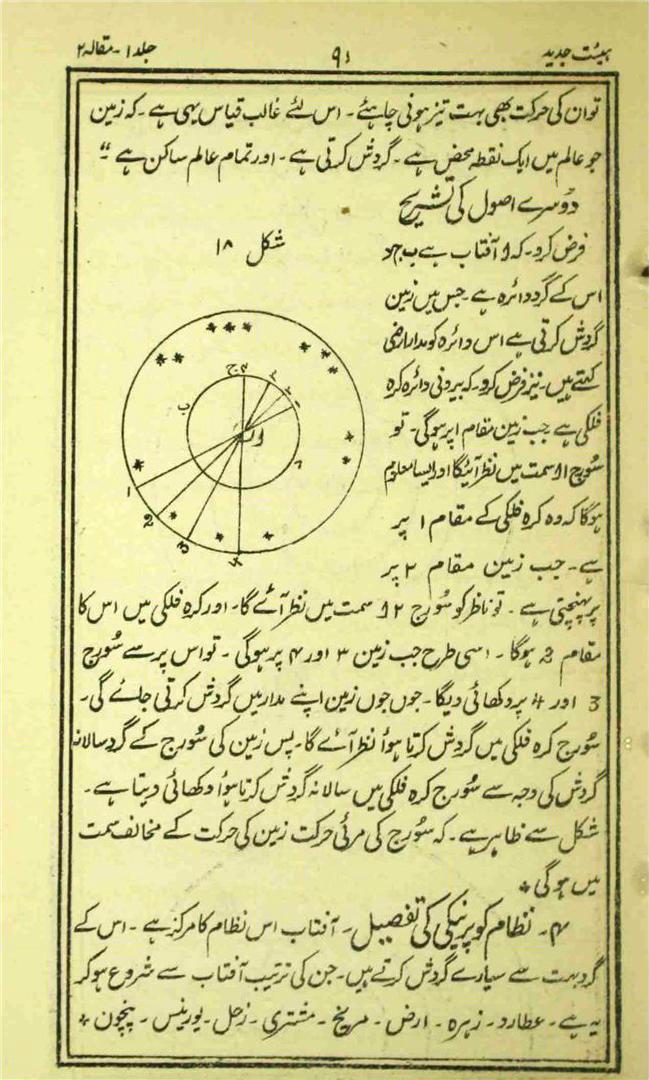 ہیئت جدید ۹۱ جلد ۱ - مقالہ ۲
توان کی حرکت بھی بہت تیز ہونی چاہئے ۔ اس لئے غالب قیاس یہی ہے ۔ کہ زمین
جو عالم میں ایک نقطہ محض ہے ۔ گردش کرتی ہے ۔ اور تمام عالم ساکن ہے "
دوسرے اصول کی تشریح
فرض کرو ۔ کہ ا آفتاب ہے ب ج
شکل ۱۸
اس کے گرد دائرہ ہے ۔ جس میں زمین
گردش کرتی ہے اس دائرہ کو مدار ارضی
کہتے ہیں ۔ نیز فرض کرو ۔ کہ بیرونی دائرہ کرہ
فلکی ہے جب زمین مقام ۱ پر ہوگی ۔ تو
سورج ۱۱ سمت میں نظر آئیگا اور ایسا معلوم
ہوگا کہ وہ کرہ فلکی کے مقام 1 پر
ہے ۔ جب زمین مقام ۲ پر
ج ۴ ۳ ۲ ۱
ب
ا
د
1
2
3
4
پر پہنچتی ہے ۔ تو ناظر کو سورج ۱۲ سمت میں نظر آئے گا ۔ اور کرہ فلکی میں اس کا
مقام 2 ہوگا ۔ اسی طرح جب زمین ۳ اور ۴ پر ہوگی ۔ تو اس پر سے سورج
3 اور 4 پر دکھائی دیگا ۔ جوں جوں زمین اپنے مدار میں گردش کرتی جائے گی ۔
سورج کرہ فلکی میں گردش کرتا ہوا نظر آئے گا ۔ پس زمین کی سورج کے گرد سالانہ
گردش کی وجہ سے سورج کرہ فلکی میں سالانہ گردش کرتا ہوا دکھائی دیتا ہے ۔
شکل سے ظاہر ہے ۔ کہ سورج کی مرئی حرکت زمین کی حرکت کے مخالف سمت
میں ہوگی *
۴ ۔ نظام کوپرنیکی کی تفصیل ۔ آفتاب اس نظام کا مرکز ہے ۔ اس کے
گرد بہت سے سیارے گردش کرتے ہیں ۔ جن کی ترتیب آفتاب سے شروع ہوکر
یہ ہے ۔ عطارد ۔ زہرہ ۔ ارض ۔ مریخ ۔ مشتری ۔ زحل ۔ یورینس ۔ نپچون *